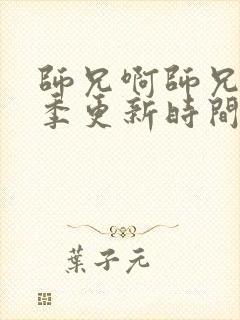 師兄啊師兄
季更新時間
葉子元